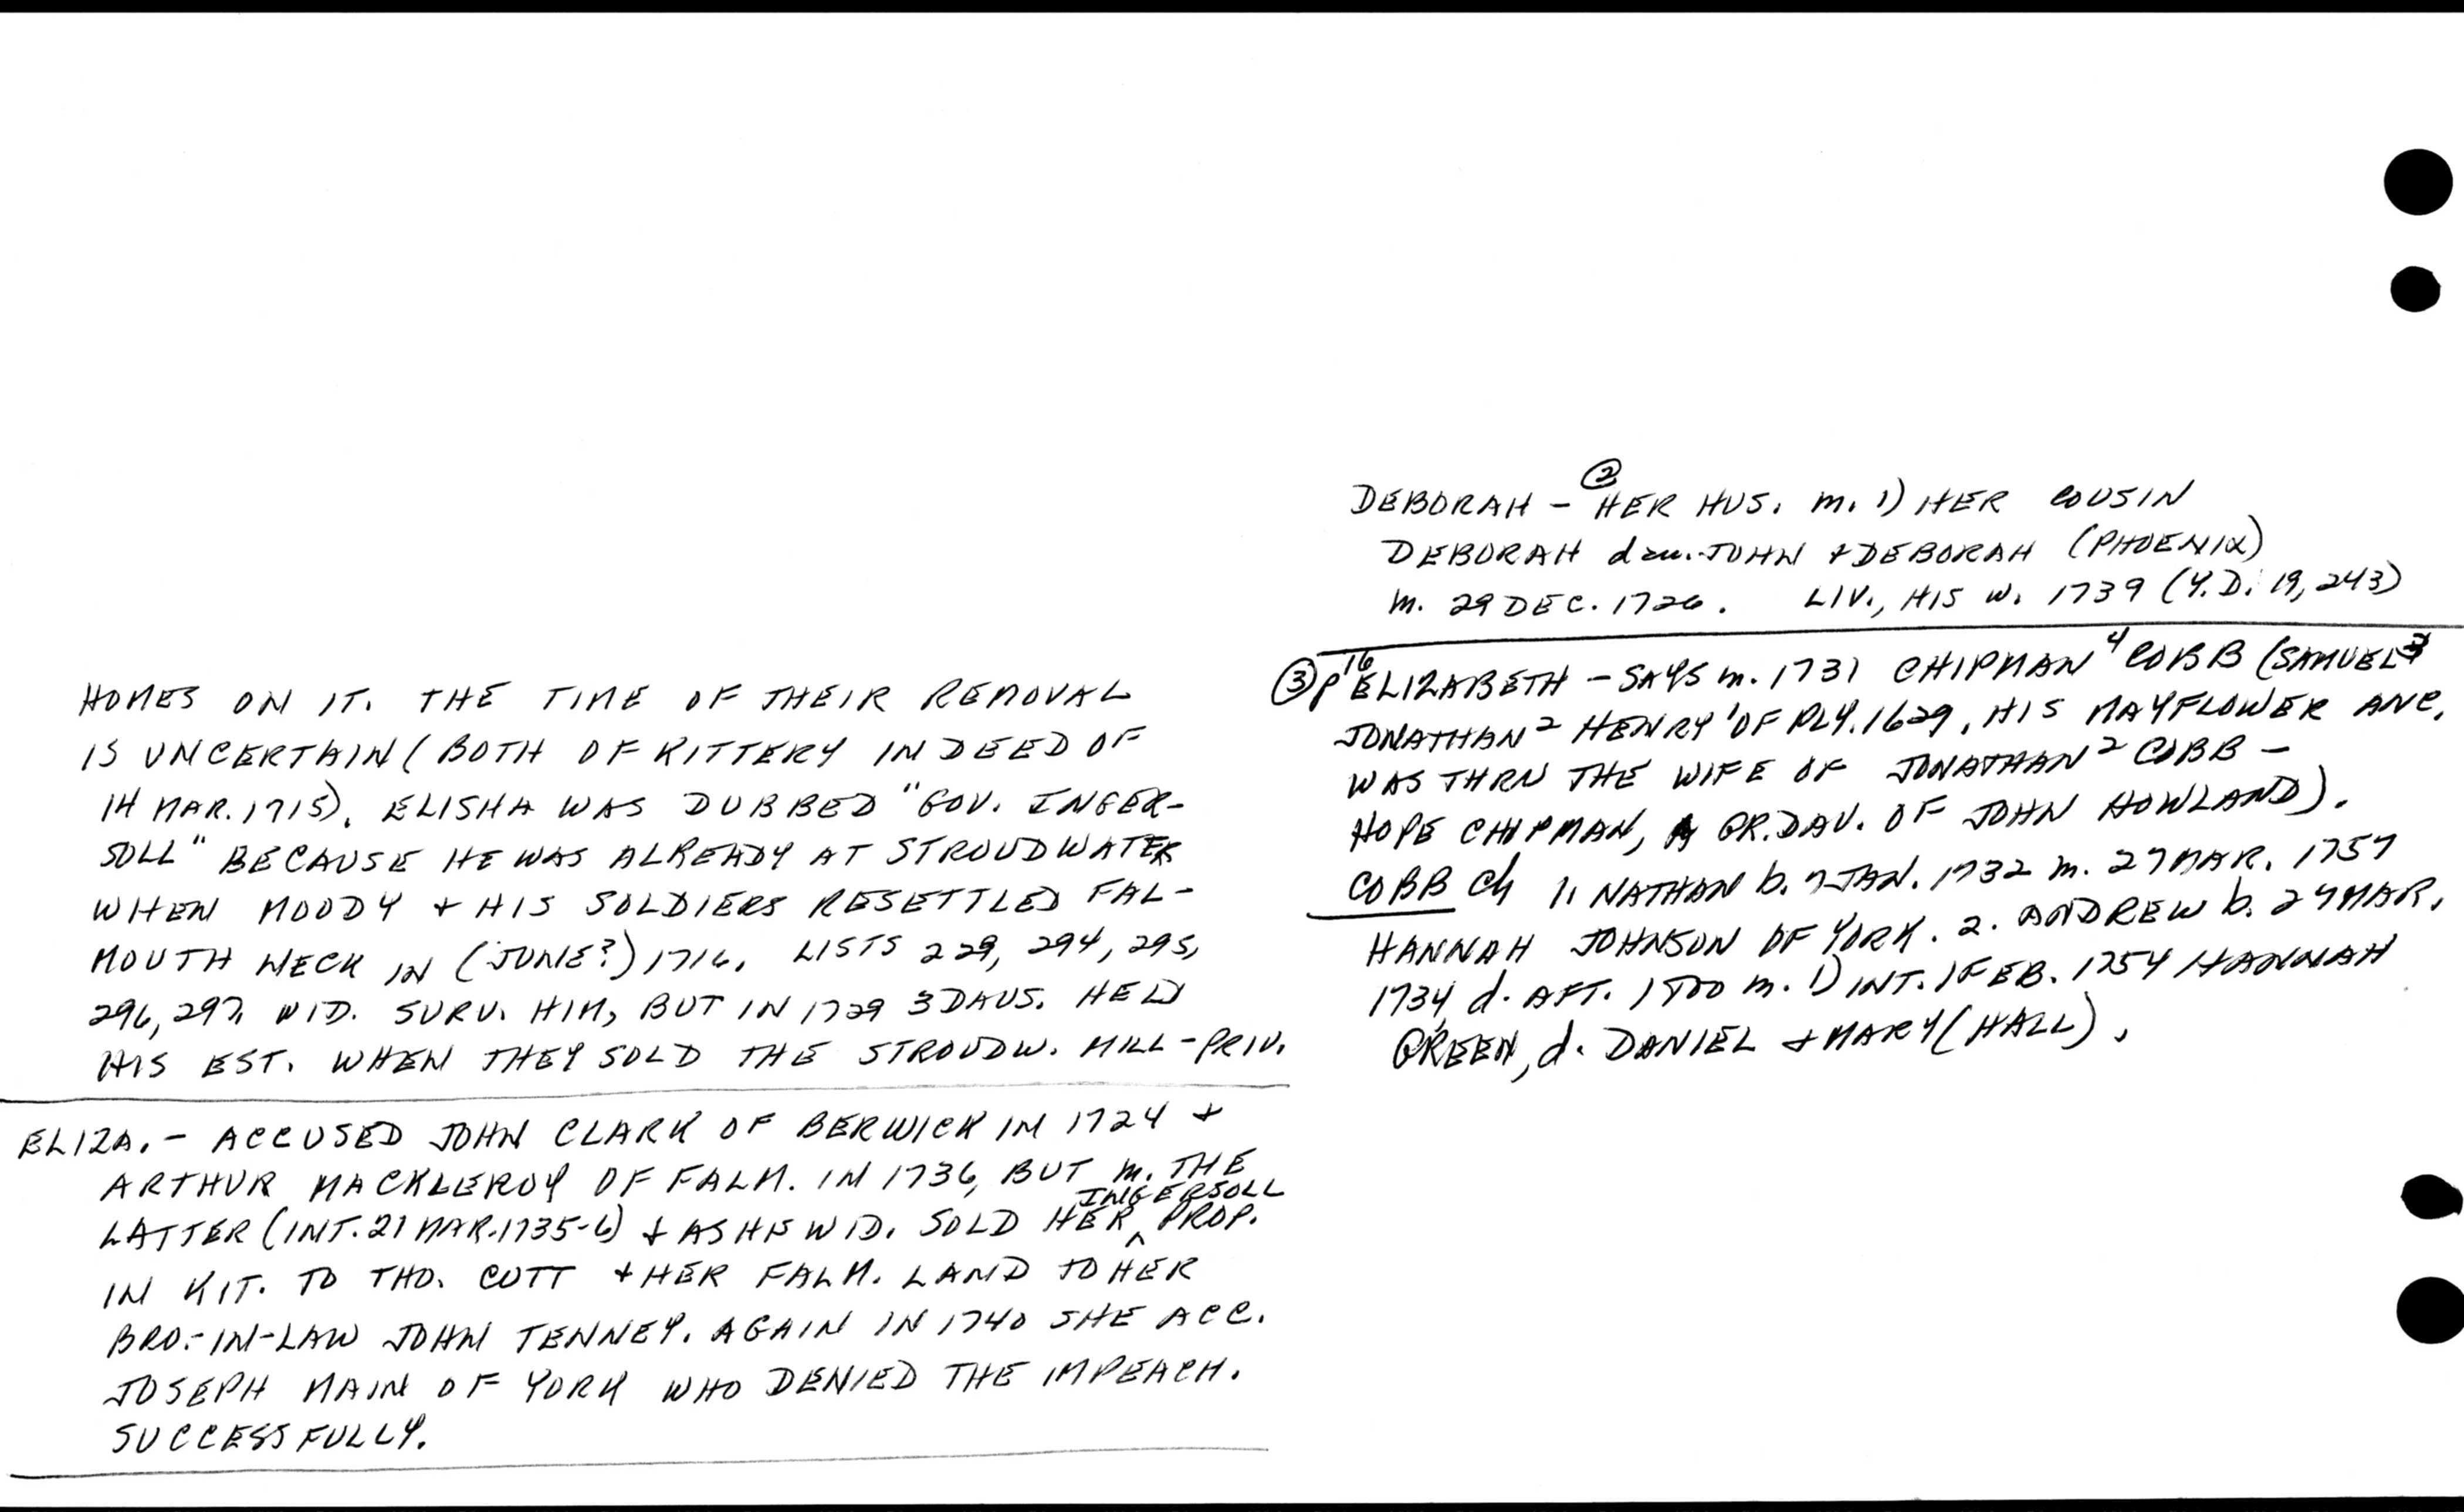 HOMES ON IT. THE TIME OF THEIR REMOVAL
IS UNCERTAIN (BOTH OF KITTERY IN DEED OF
14 MAR. 1715). ELISHA WAS DUBBED "GOV. INGER-
SOLL" BECAUSE HE WAS ALREADY AT STROUDWATER
WHEN MOODY + HIS SOLDIERS RESETTLED FAL-
MOUTH NECK IN (JUNE?) 1716. LISTS 229, 294, 295,
296, 297. WID. SURV. HIM, BUT IN 1729 3 DAUS. HELD
HIS EST. WHEN THEY SOLD THE STROUDW. MILL-PRIV.
ELIZA. - ACCUSED JOHN CLARK OF BERWICK IN 1724 +
ARTHUR MACKLEROY OF FALM. IN 1736, BUT m. THE
LATTER (INT. 21 MAR. 1735-6) + AS HIS WID. SOLD HER INGERSOLL PROP.
IN KIT. TO THO. CUTT + HER FALM. LAND TO HER
BRO.-IN-LAW JOHN TENNEY. AGAIN IN 1740 SHE ACC.
JOSEPH MAIN OF YORK WHO DENIED THE IMPEACH.
SUCCESSFULLY.
DEBORAH - ② HER HUS. m. 1) HER COUSIN
DEBORAH dau. JOHN + DEBORAH (PHOENIX)
m. 29 DEC. 1726. LIV., HIS W. 1739 (Y.D. 19, 243)
③ P16 ELIZABETH - SAYS m. 1731 CHIPMAN⁴ COBB (SAMUEL³
JONATHAN² HENRY¹ OF PLY. 1629, HIS MAYFLOWER ANC.
WAS THRU THE WIFE OF JONATHAN² COBB -
HOPE CHIPMAN, A GR. DAU. OF JOHN HOWLAND).
COBB Ch 1. NATHAN b. 7 JAN. 1732 m. 27 MAR. 1757
HANNAH JOHNSON OF YORK. 2. ANDREW b. 24 MAR.
1734, d. AFT. 1800 m. 1) INT. 1 FEB. 1754 HANNAH
GREEN, d. DANIEL + MARY (HALL).